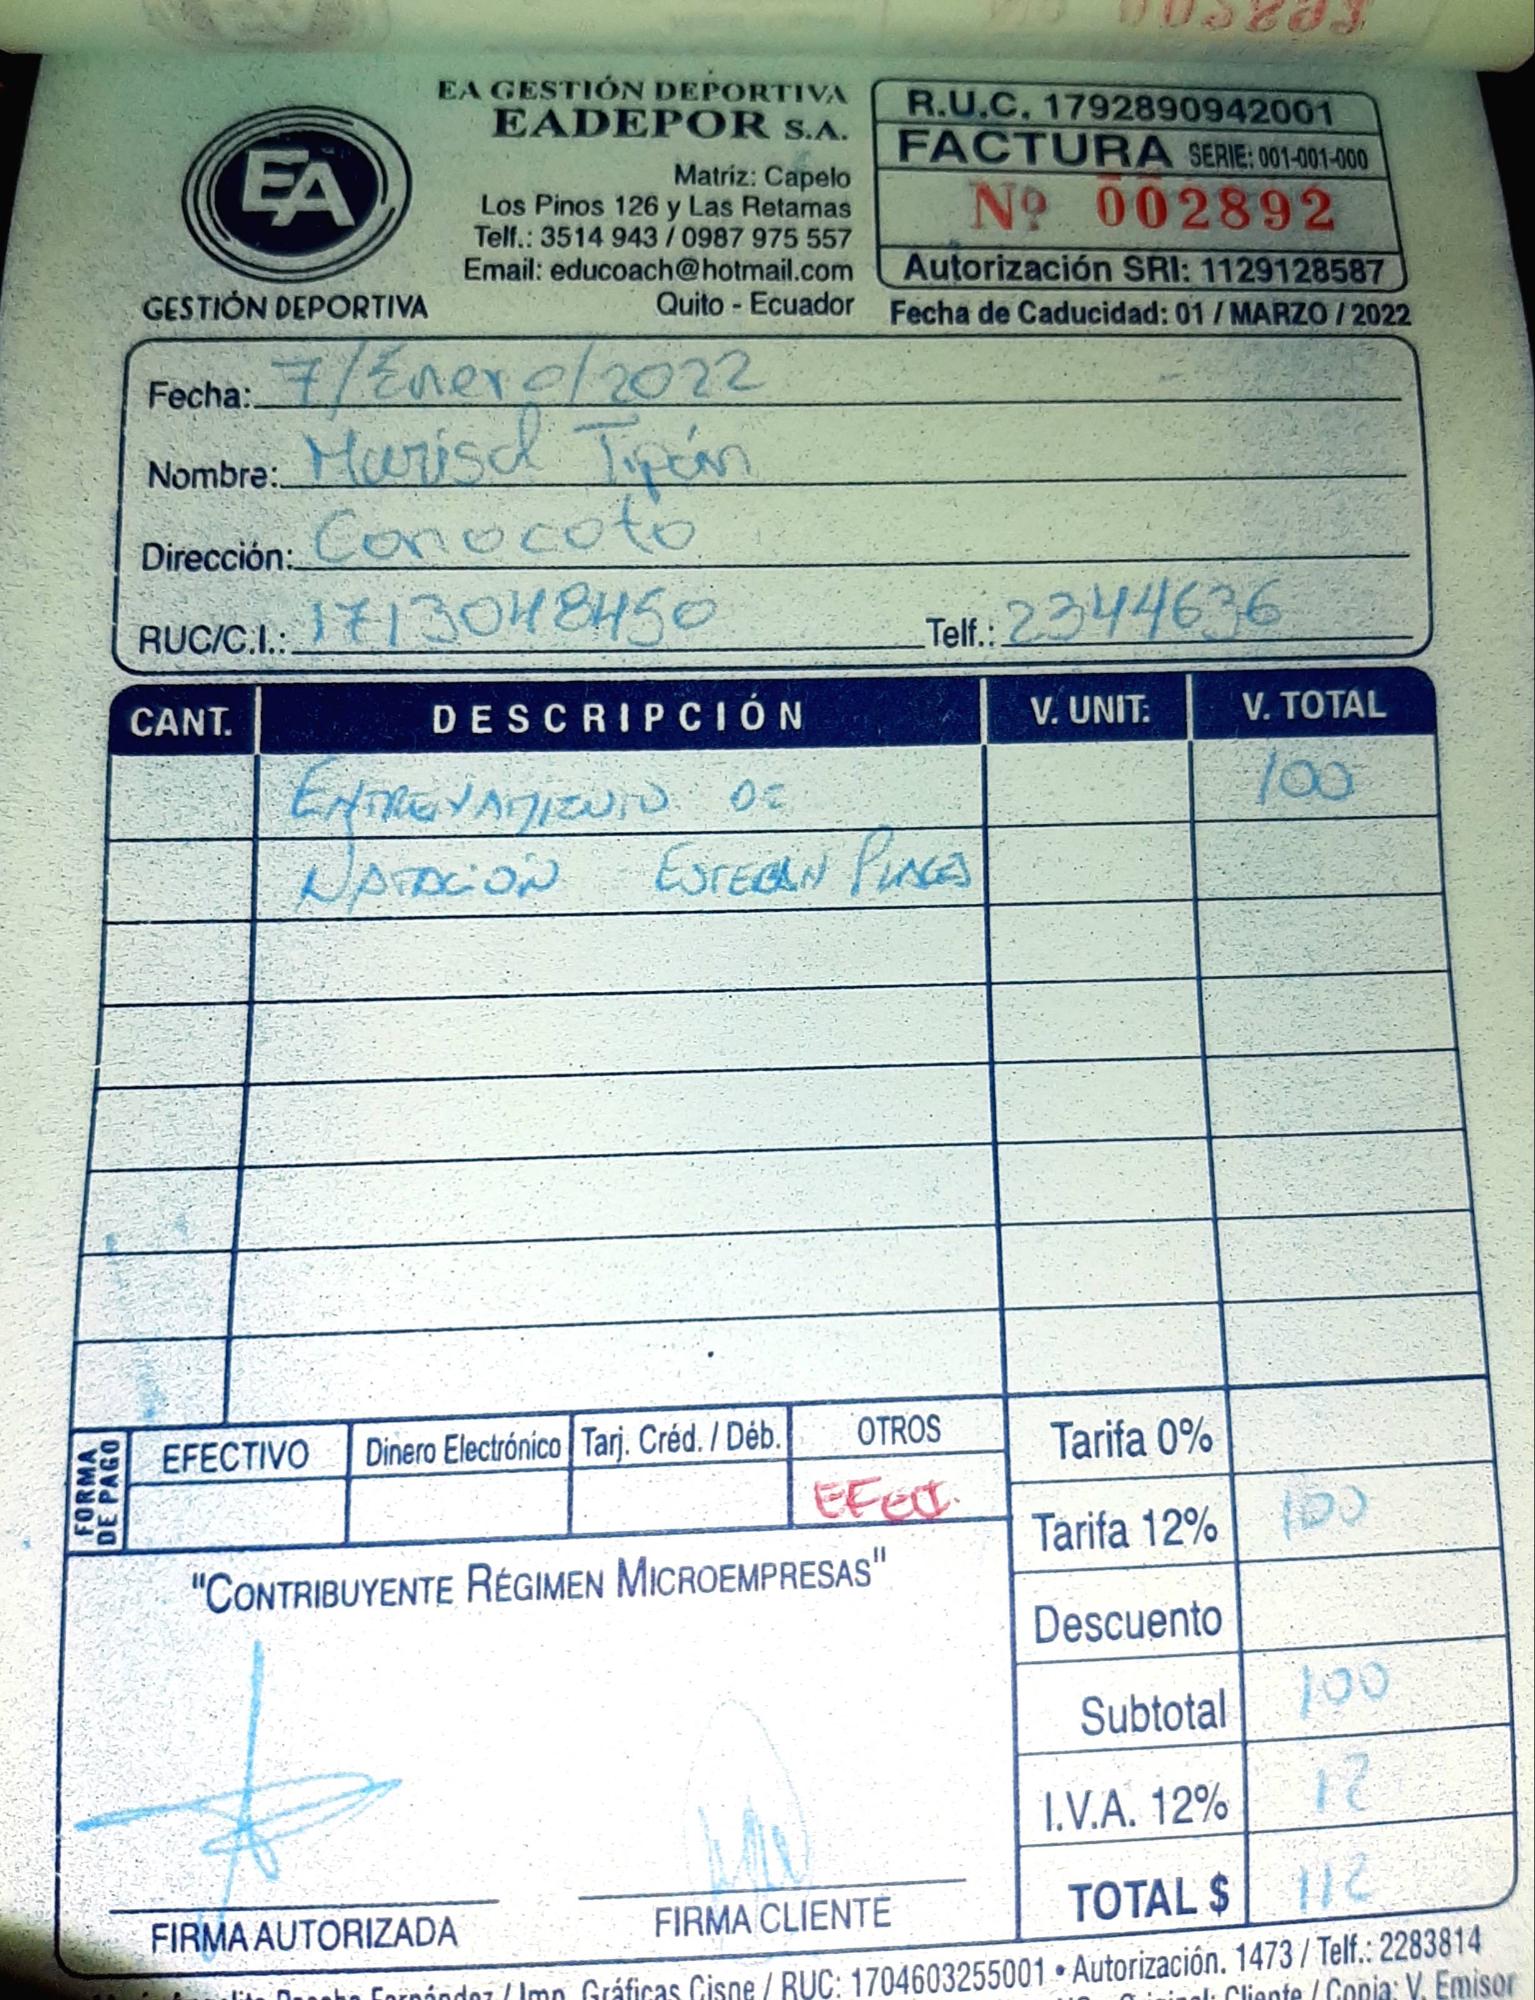 EA GESTIÓN DEPORTIVA
EADEPOR S.A.
EA
GESTIÓN DEPORTIVA
Matriz: Capelo
Los Pinos 126 y Las Retamas
Telf.: 3514 943 / 0987 975 557
Email: educoach@hotmail.com
Quito - Ecuador
R.U.C. 1792890942001
FACTURA SERIE: 001-001-000
Nº 002892
Autorización SRI: 1129128587
Fecha de Caducidad: 01 / MARZO / 2022
Fecha: 7/Enero/2022
Nombre: Marisol Tipán
Dirección: Conocoto
RUC/C.I.: 1713048450 Telf.: 2344636
CANT. DESCRIPCIÓN V. UNIT: V. TOTAL
ENTRENAMIENTO DE 100
NATACIÓN ESTEBAN
FORMA DE PAGO EFECTIVO Dinero Electrónico Tarj. Créd. / Déb. OTROS
EFECT.
Tarifa 0%
Tarifa 12% 100
Descuento
Subtotal 100
I.V.A. 12% 12
TOTAL $ 112
"CONTRIBUYENTE RÉGIMEN MICROEMPRESAS"
FIRMA AUTORIZADA FIRMA CLIENTE
Fernández / Imp. Gráficas Cisne / RUC: 1704603255001 • Autorización. 1473 / Telf.: 2283814
Original: Cliente / Copia: V. Emisor